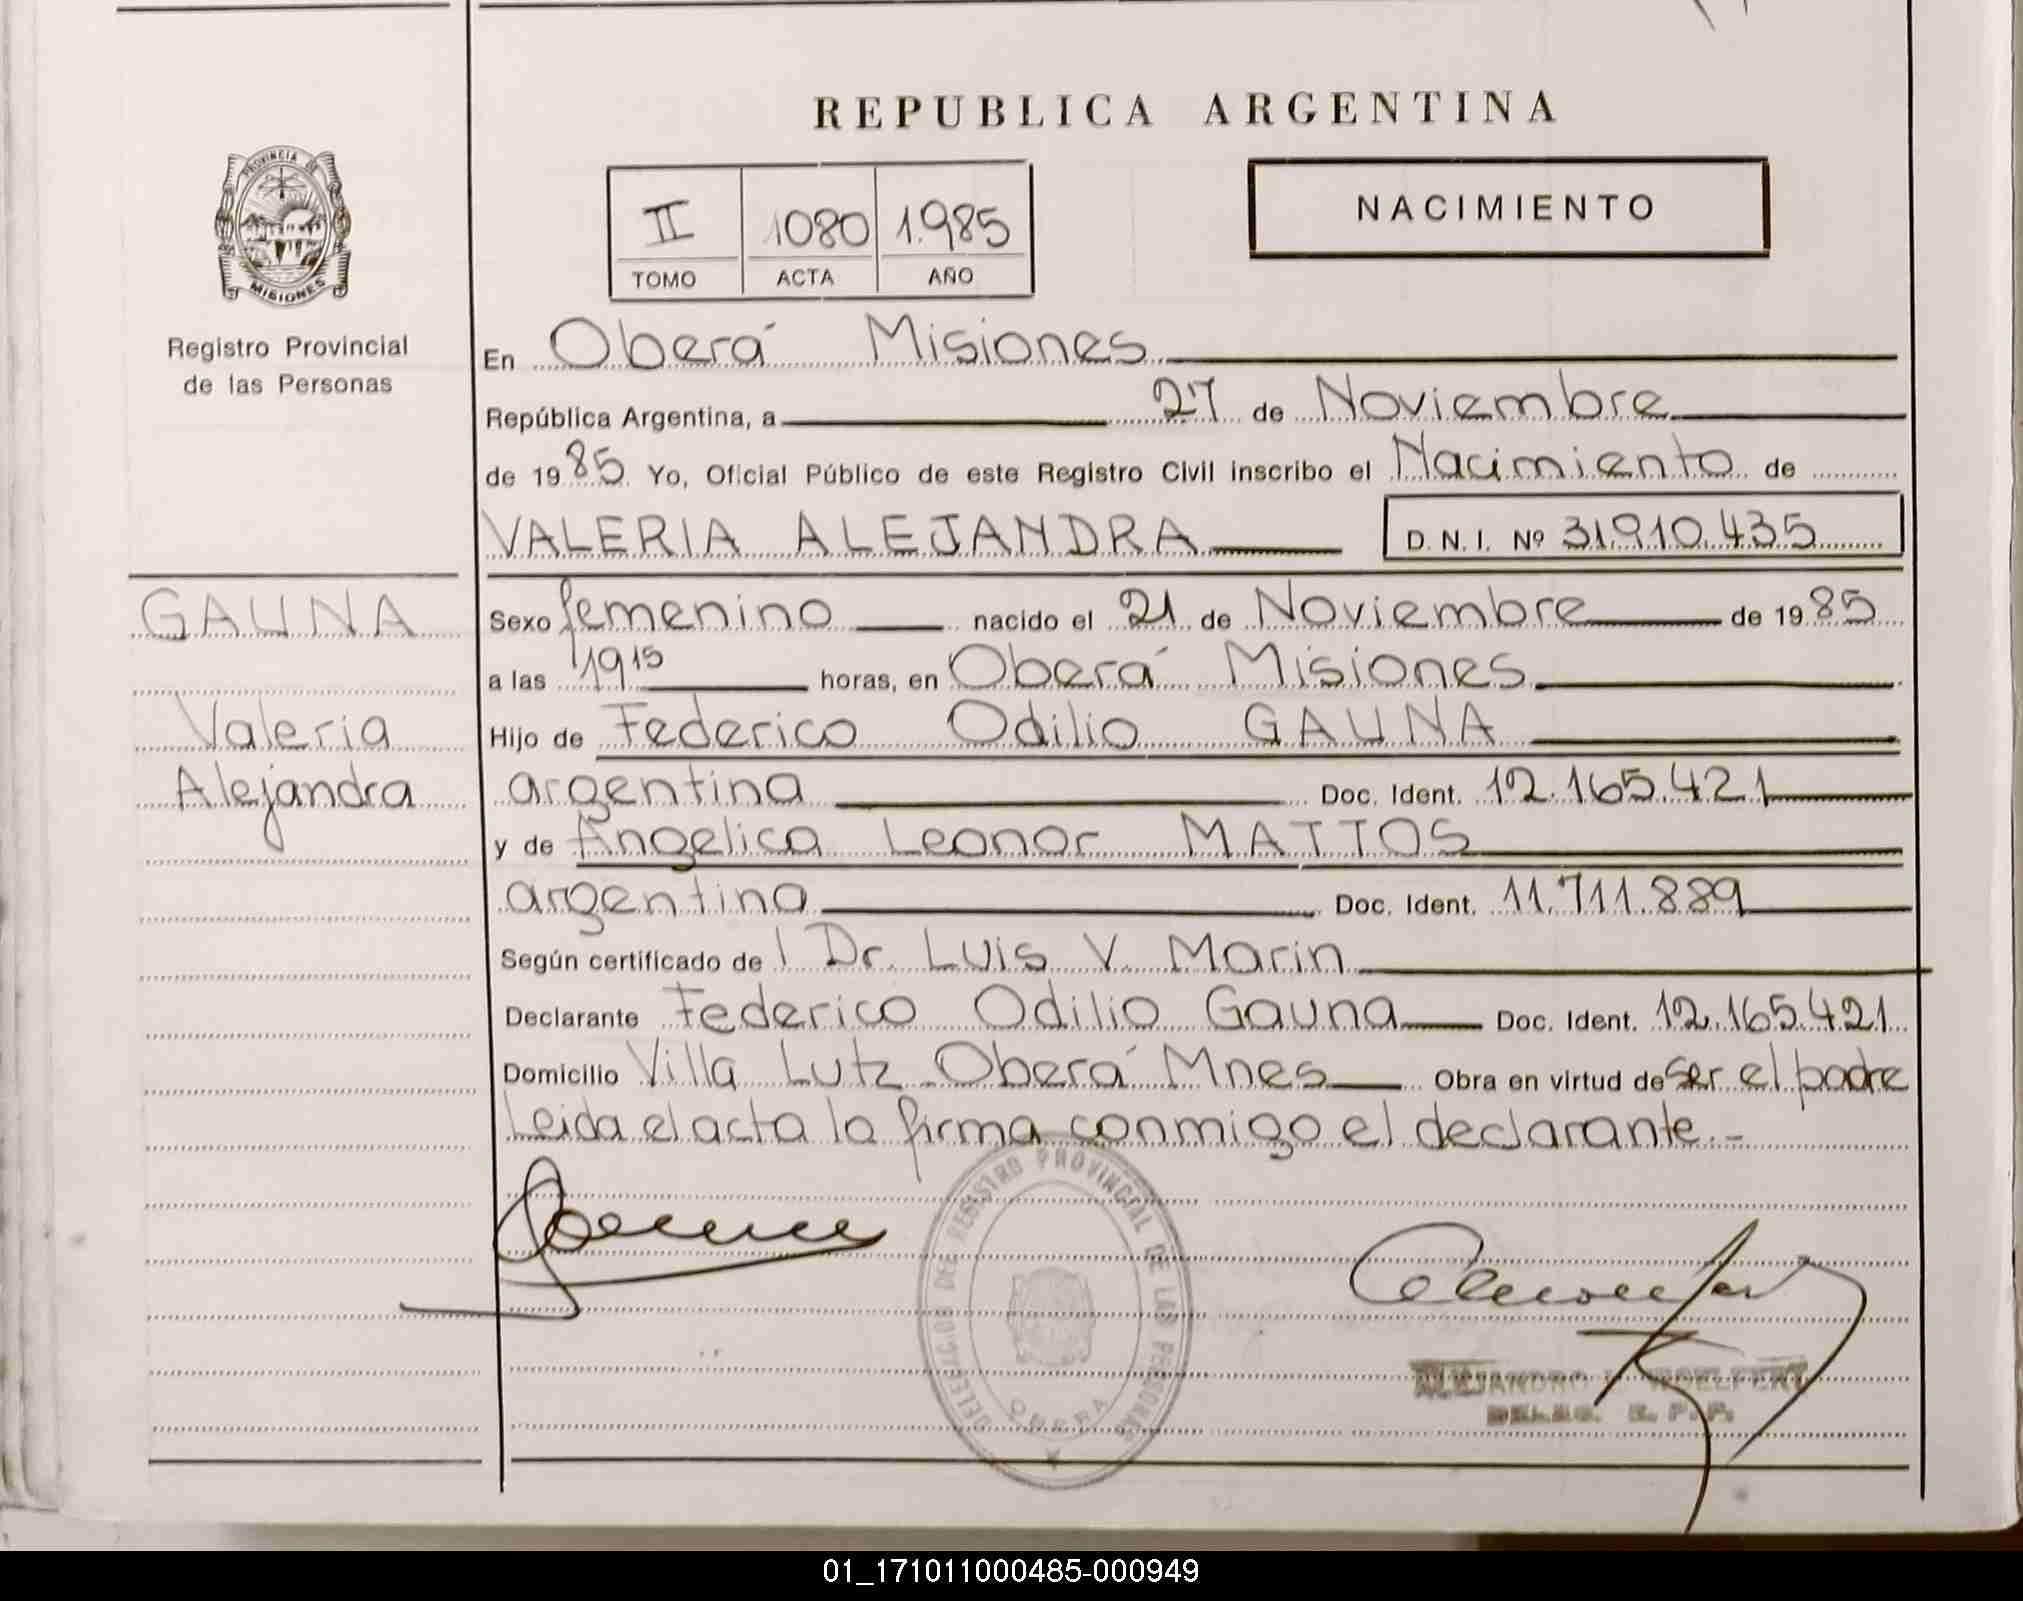 REPUBLICA ARGENTINA
PROVINCIA DE MISIONES
Registro Provincial
de las Personas
II 1080 1.985
TOMO ACTA AÑO
NACIMIENTO
En Oberá Misiones
República Argentina, a 27 de Noviembre
de 1985 Yo, Oficial Público de este Registro Civil inscribo el Nacimiento de
VALERIA ALEJANDRA D. N. I. Nº 31.910.435
GAUNA
Valeria
Alejandra
Sexo femenino nacido el 21 de Noviembre de 1985
a las 19 15 horas, en Oberá Misiones
Hijo de Federico Odilio GAUNA
argentina Doc. Ident. 12.165.421
y de Angelica Leonor MATTOS
argentina Doc. Ident. 11.711.889
Según certificado de l Dr. Luis V. Marin
Declarante Federico Odilio Gauna Doc. Ident. 12.165.421
Domicilio Villa Lutz Oberá Mnes Obra en virtud de ser el padre
Leida el acta la firma conmigo el declarante.-
DELEGACION DEL REGISTRO PROVINCIAL DE LAS PERSONAS
OBERA
ALEJANDRO
DELEG. R. P. P.
01_171011000485-000949